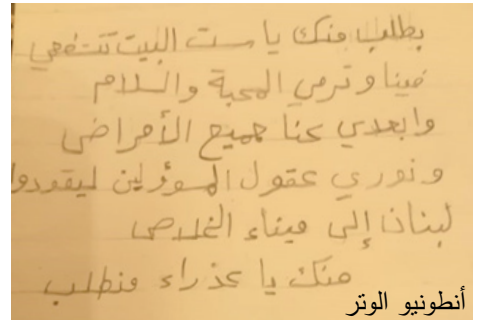 بطلب منك يا ست البيت تتشفعي
فينا وترمي المحبة والسلام
وابعدي عنا جميع الأمراض
ونوري عقول المسؤولين ليقودوا
لبنان إلى ميناء الخلاص
منك يا عذراء منطلب
أنطونيو الوتر